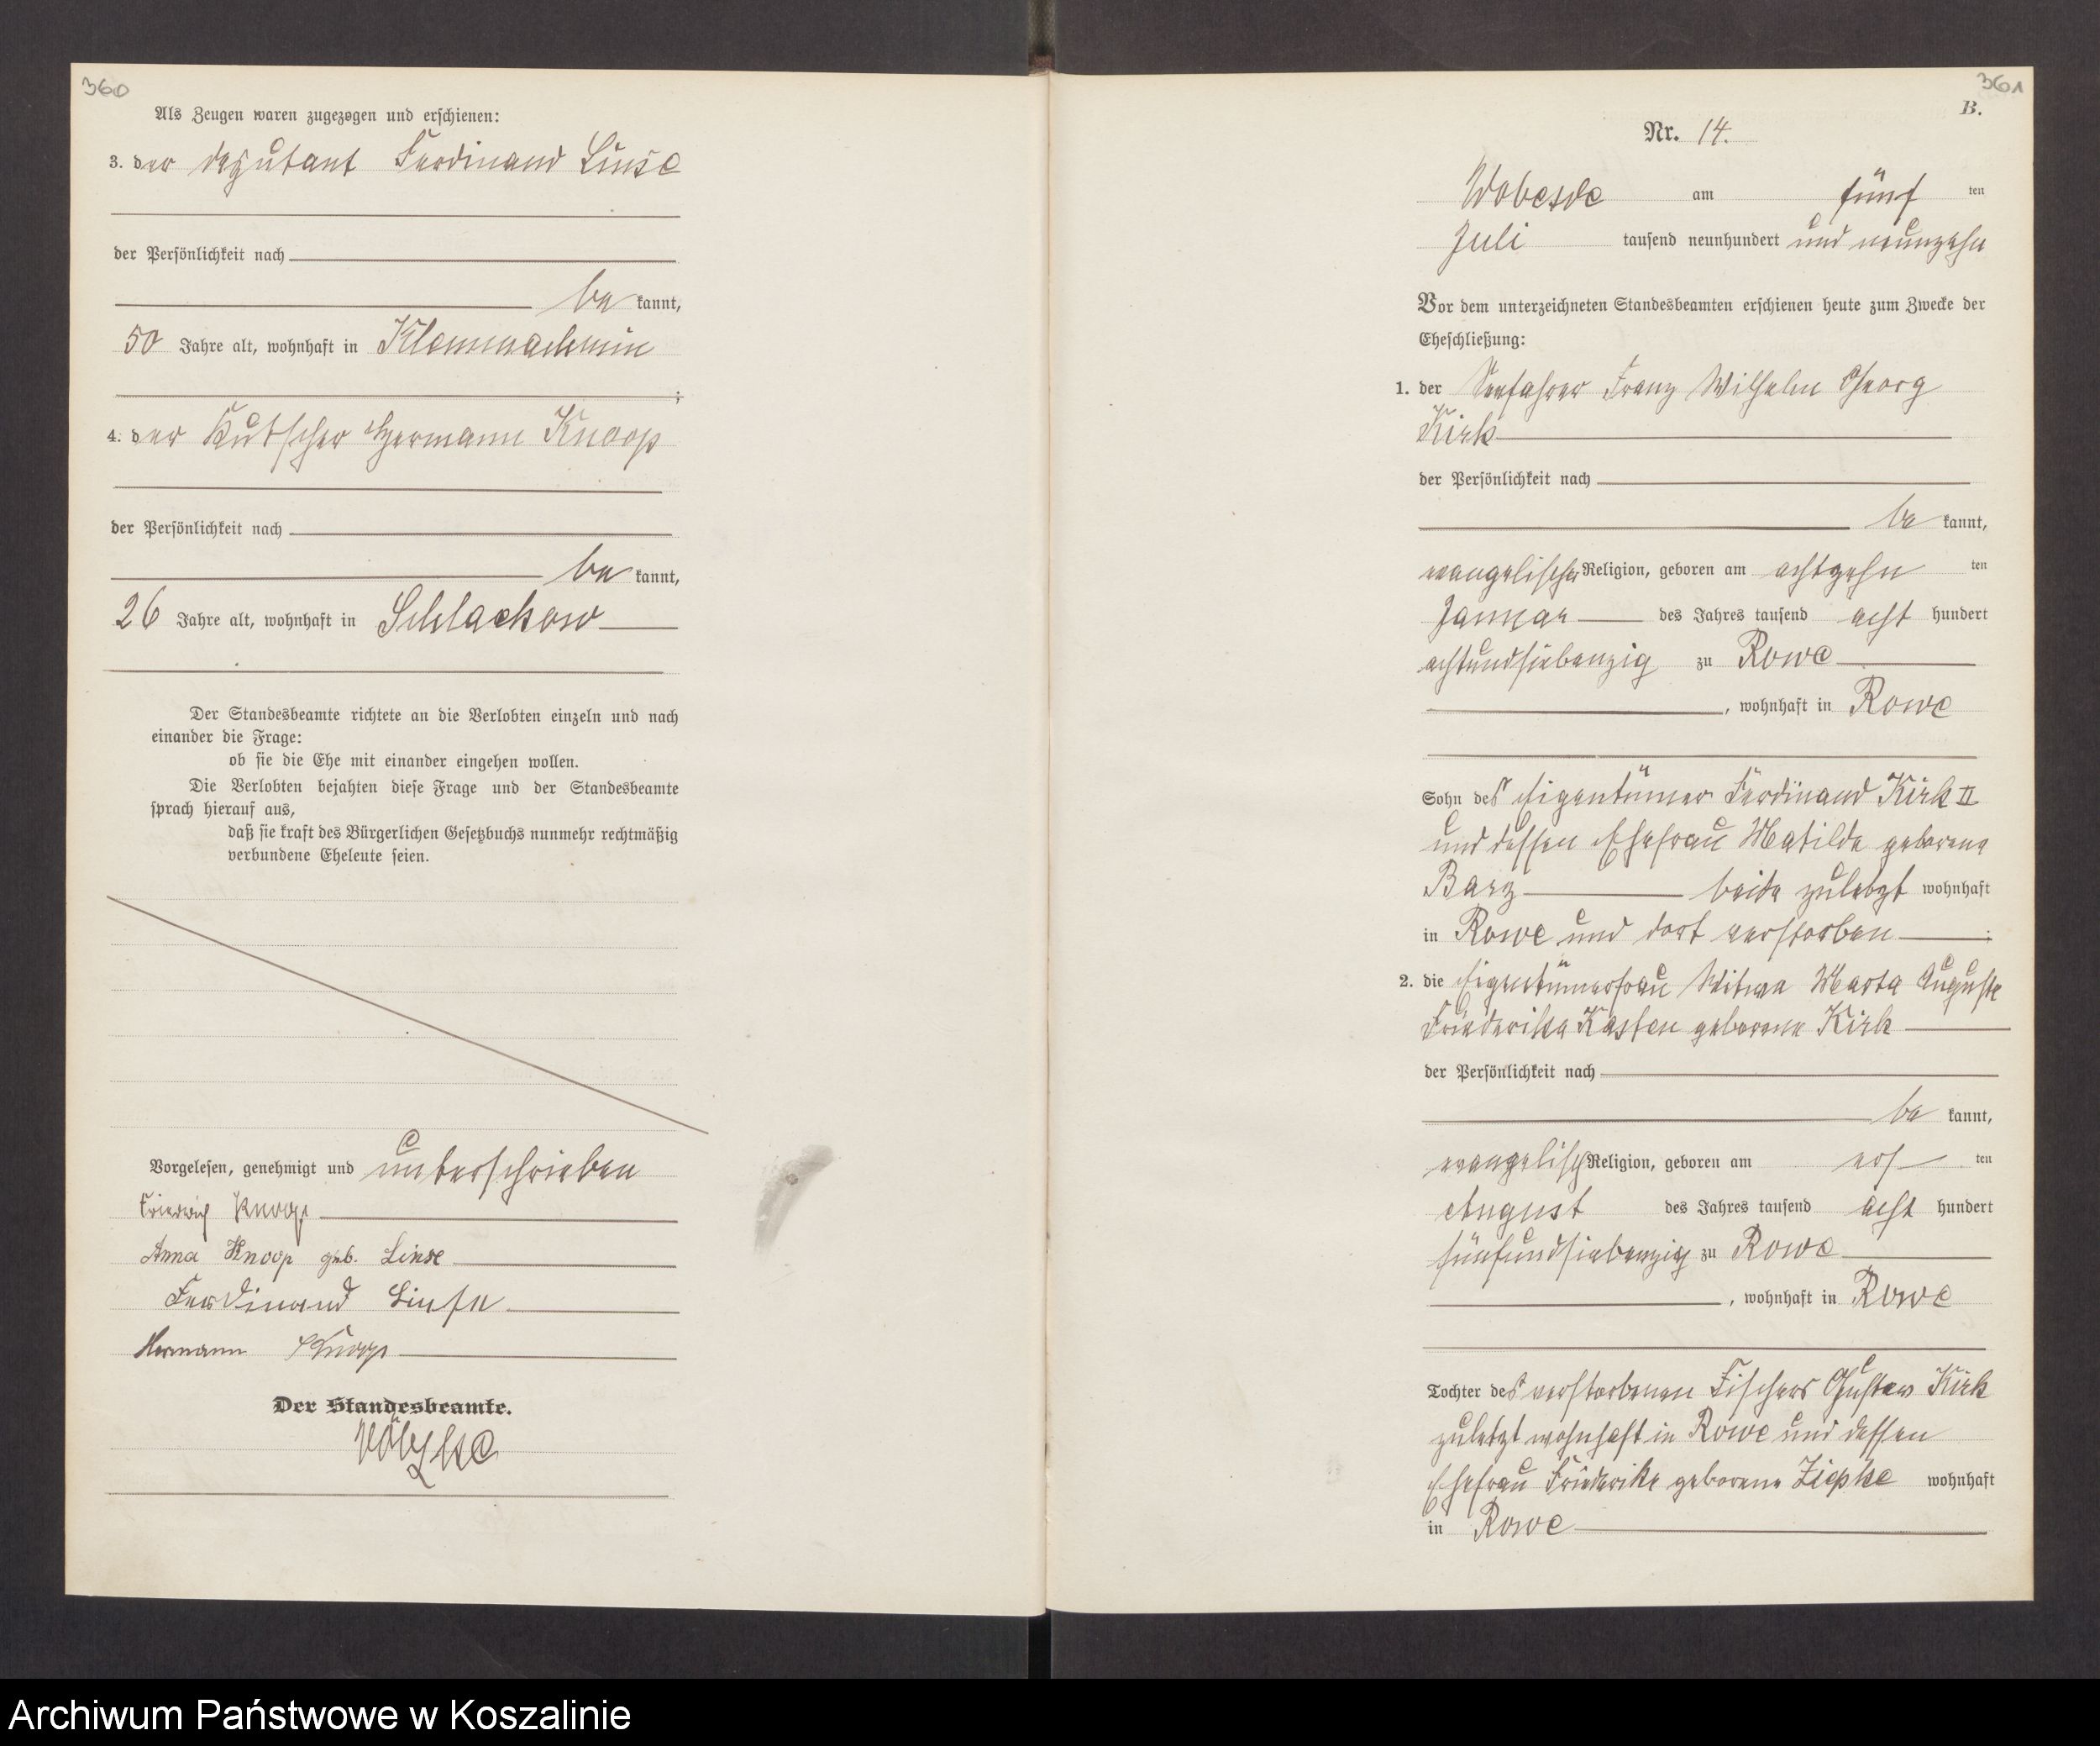 360
Als Zeugen waren zugezogen und erschienen:
3. der Deputant Ferdinand Linse
der Persönlichkeit nach
be kannt,
50 Jahre alt, wohnhaft in
;
4. der Kutscher Hermann Knoop
der Persönlichkeit nach
be kannt,
26 Jahre alt, wohnhaft in Schlackow
Der Standesbeamte richtete an die Verlobten einzeln und nach
einander die Frage:
ob sie die Ehe mit einander eingehen wollen.
Die Verlobten bejahten diese Frage und der Standesbeamte
sprach hierauf aus,
daß sie kraft des Bürgerlichen Gesetzbuchs nunmehr rechtmäßig
verbundene Eheleute seien.
Vorgelesen, genehmigt und unterschrieben
Friedrich Knoop
Anna Knoop geb. Linse
Ferdinand Linse
Hermann Knoop
Der Standesbeamte.
361
B.
Nr. 14.
Wobesde am fünf ten
Juli tausend neunhundert und neunzehn
Vor dem unterzeichneten Standesbeamten erschienen heute zum Zwecke der
Eheschließung:
1. der Seefahrer Franz Wilhelm Georg
Kirk
der Persönlichkeit nach
be kannt,
evangelischer Religion, geboren am achtzehn ten
Januar des Jahres tausend acht hundert
achtundsiebenzig zu Rowe
, wohnhaft in Rowe
Sohn des Eigentümer Ferdinand Kirk II
und dessen Ehefrau Matilde geborene
Barz beide zuletzt wohnhaft
in Rowe und dort verstorben ;
2. die Eigentümerfrau Witwe Marta Auguste
Friederike Kasten geborene Kirk
der Persönlichkeit nach
be kannt,
evangelisch Religion, geboren am ers ten
August des Jahres tausend acht hundert
fünfundsiebenzig zu Rowe
, wohnhaft in Rowe
Tochter des verstorbenen Fischers Gustav Kirk
zuletzt wohnhaft in Rowe und dessen
Ehefrau Friederike geborene Ziepke wohnhaft
in Rowe
Archiwum Państwowe w Koszalinie